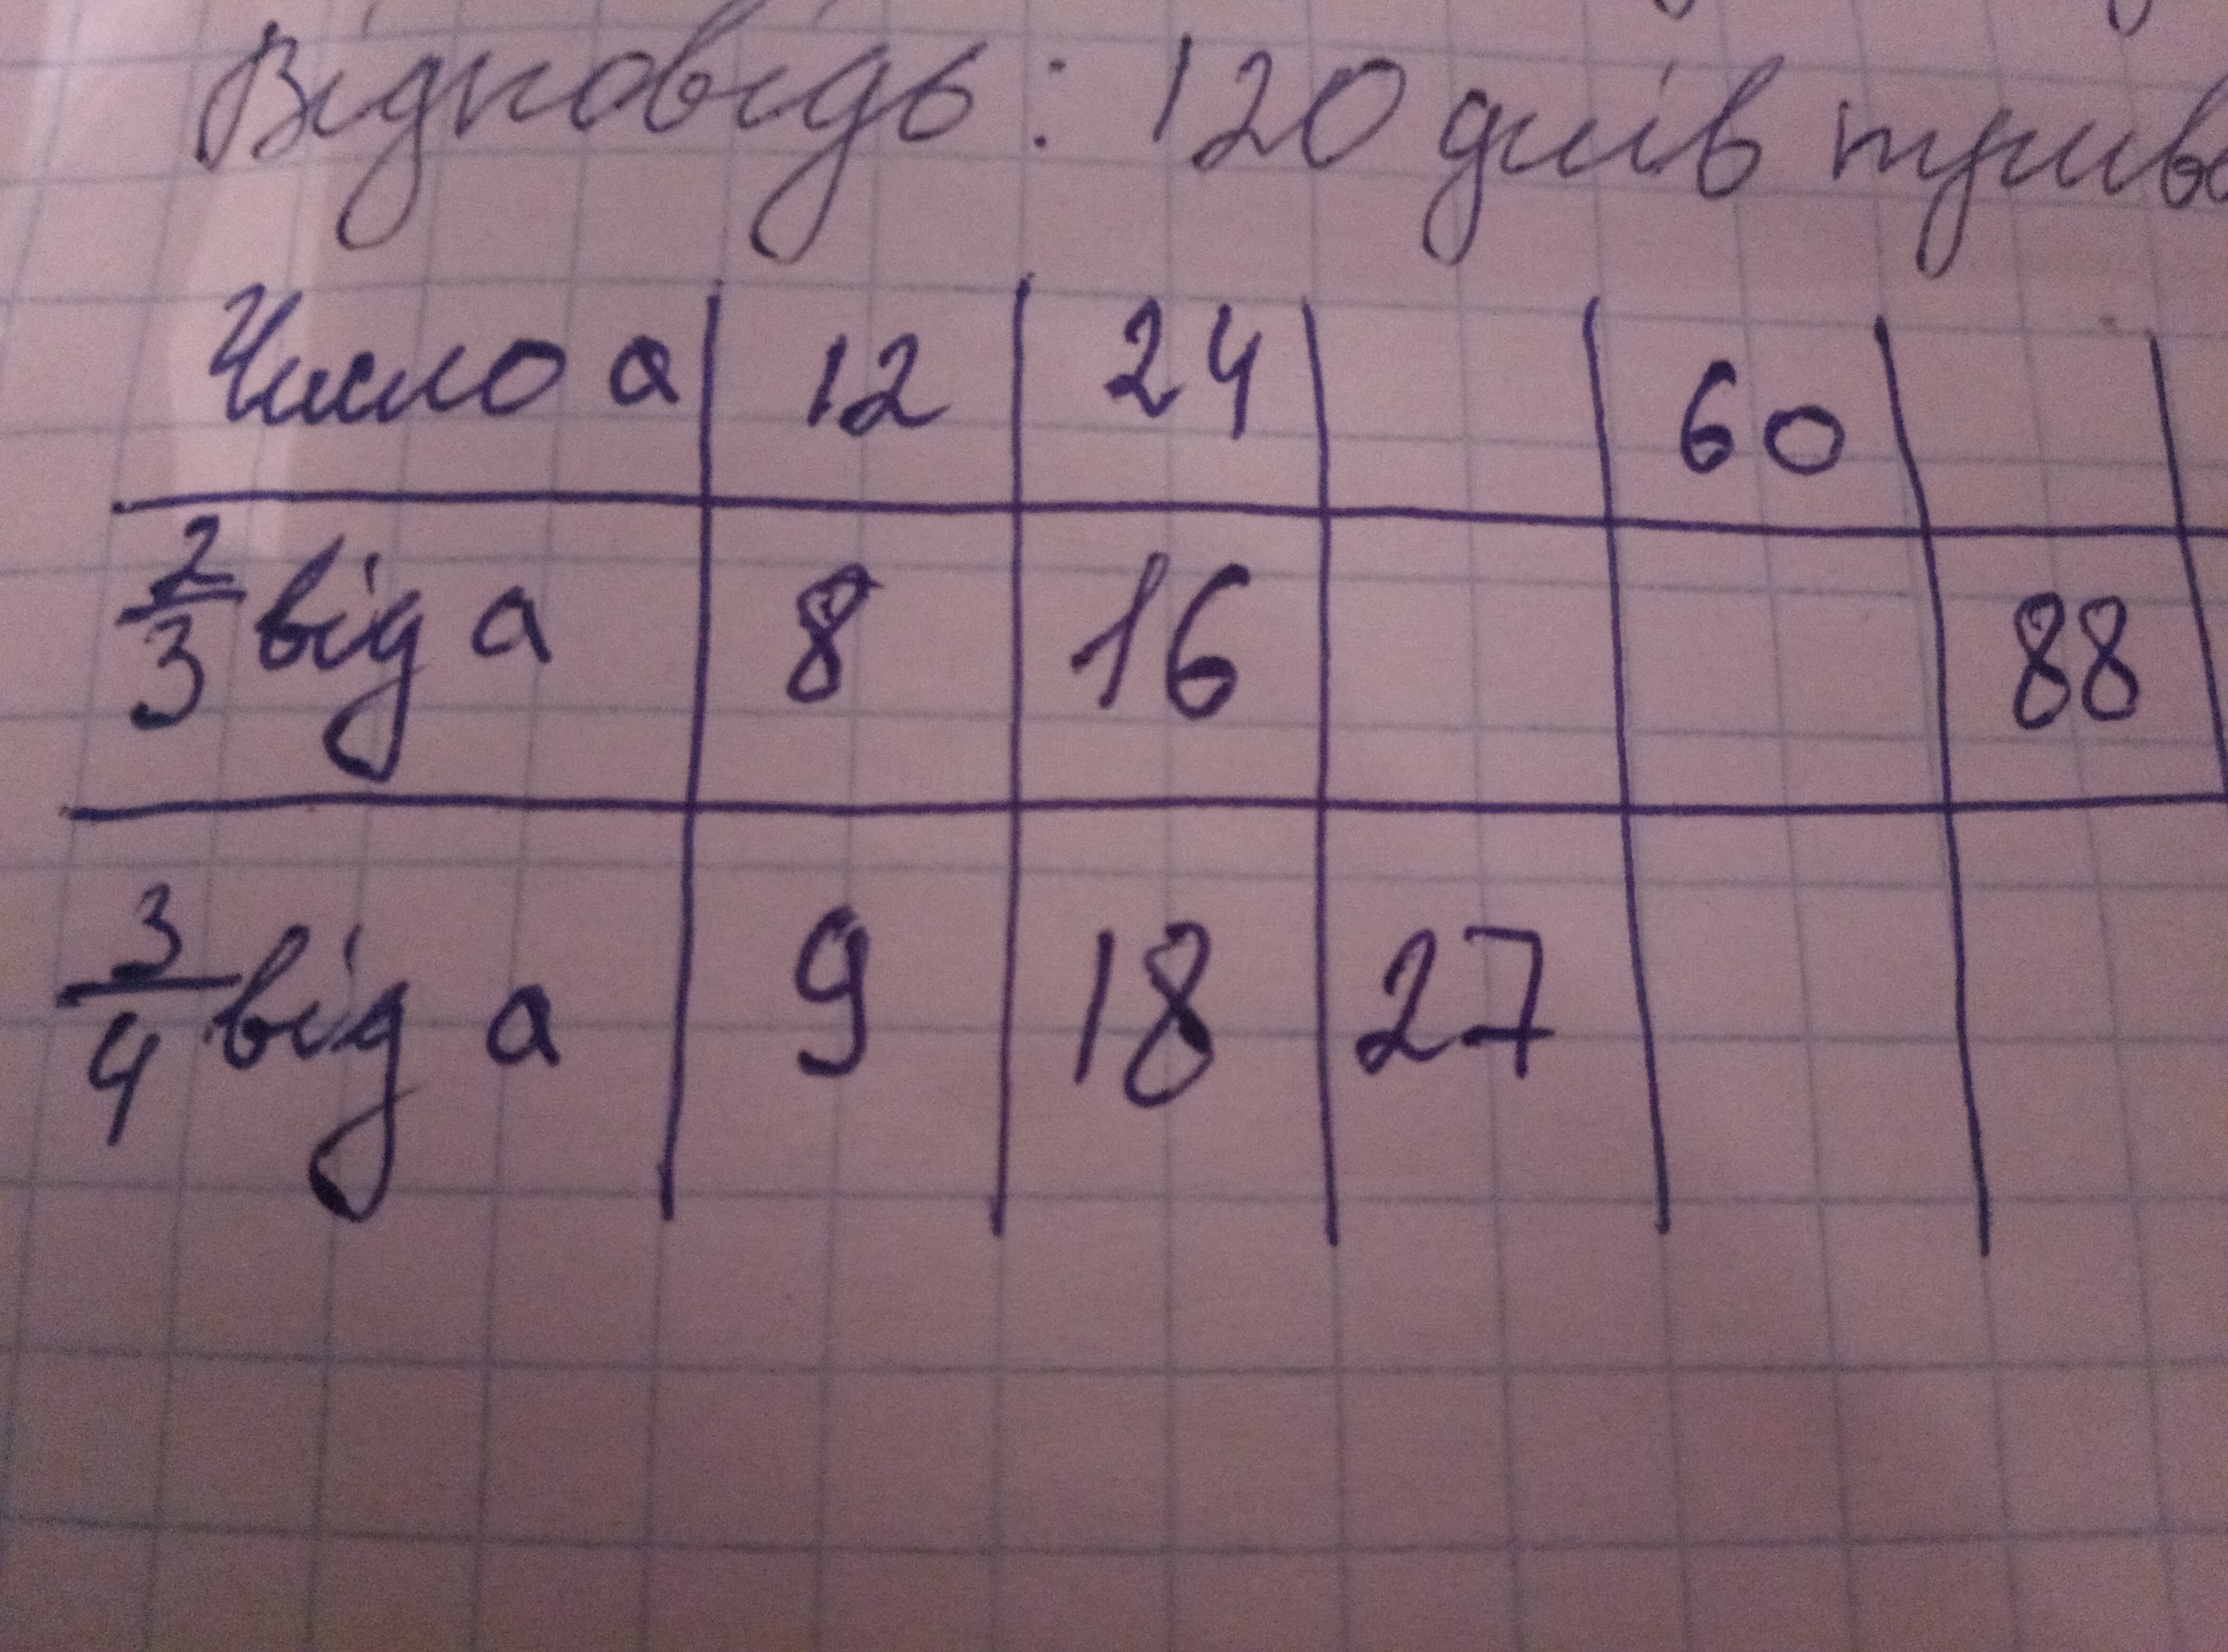 Відповідь: 120 днів
Число а 12 24 60
2/3 від а 8 16 88
3/4 від а 9 18 27